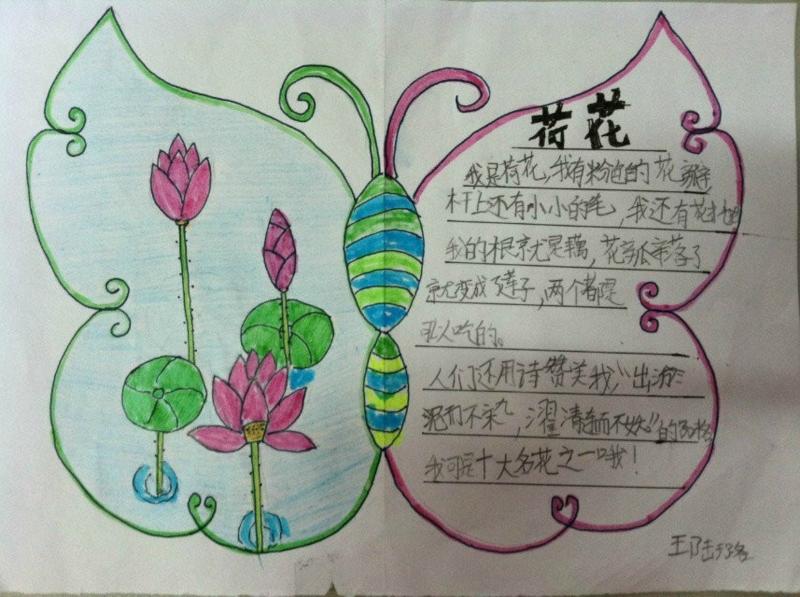 荷花
我是荷花,我有粉色的花瓣
杆上还有小小的毛,我还有花
我的根就是藕,花瓣落了
就变成了莲子,两个都是
可以吃的。
人们还用诗赞美我,“出淤
泥而不染,濯清涟而不妖”的
我可是十大名花之一哦!